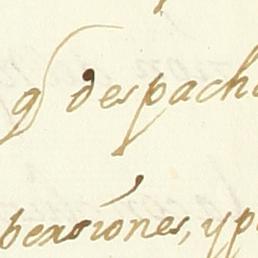 q despach
bersiones, y p